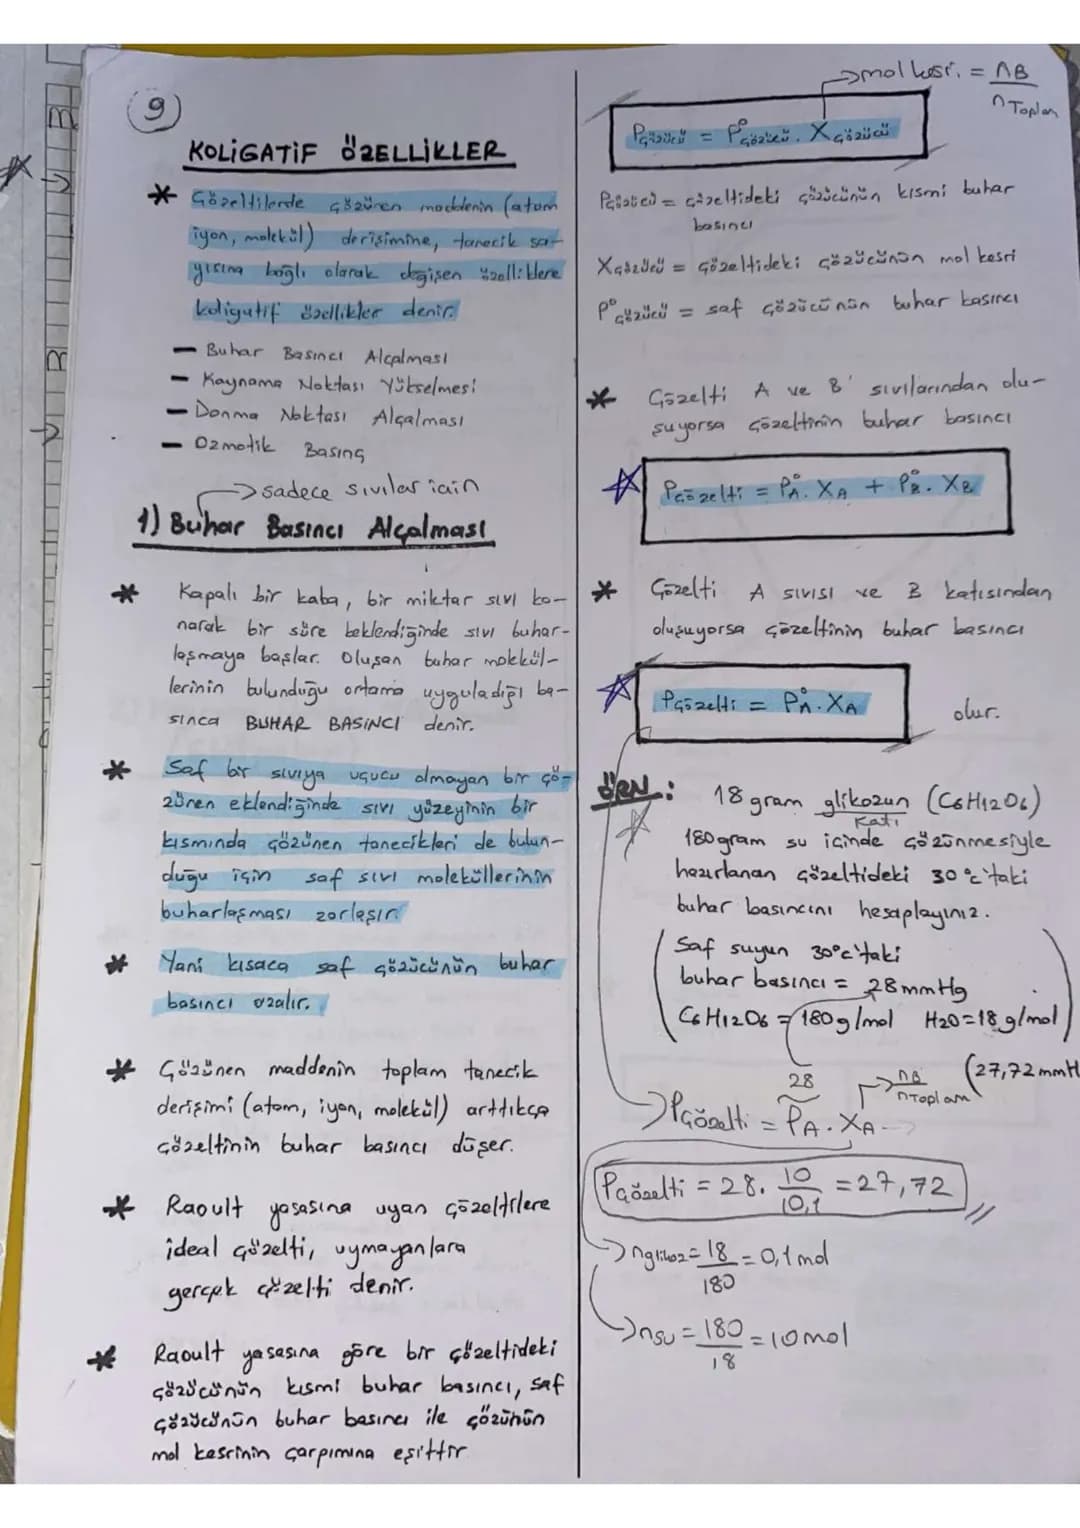 9
KOLİGATİF ÖZELLİKLER
* Çözeltilerde çözünen maddenin (atom
iyon, molekül) derişimine, tanecik sa-
yısına bağlı olarak değişen özelliklere
koligatif özellikler denir.
— Buhar Basıncı Alçalması
— Kaynama Noktası Yükselmesi
— Donma Noktası Alçalması
— Ozmotik Basınç
→ sadece sıvılar için
1) Buhar Basıncı Alçalması
* Kapalı bir kaba, bir miktar sıvı ko-
narak bir süre beklendiğinde sıvı buhar-
laşmaya başlar. Oluşan buhar molekül-
lerinin bulunduğu ortama uyguladığı ba-
sınca BUHAR BASINCI denir.
* Saf bir sıvıya uçucu olmayan bir çö-
zünen eklendiğinde sıvı yüzeyinin bir
kısmında çözünen tanecikleri de bulun-
duğu için saf sıvı moleküllerinin
buharlaşması zorlaşır.
* Yani kısaca saf çözücünün buhar
basıncı azalır.
* Çözünen maddenin toplam tanecik
derişimi (atom, iyon, molekül) arttıkça
çözeltinin buhar basıncı düşer.
* Raoult yasasına uyan çözeltilere
ideal çözelti, uymayanlara
gerçek çözelti denir.
* Raoult yasasına göre bir çözeltideki
çözücünün kısmi buhar basıncı, saf
çözücünün buhar basıncı ile çözünün
mol kesrinin çarpımına eşittir
→ mol kesri. = nB
n Toplam
Pçözücü = P°çözücü . Xçözücü
Pçözücü = çözeltideki çözücünün kısmi buhar
basıncı
Xçözücü = çözeltideki çözücünün mol kesri
P°çözücü = saf çözücünün buhar basıncı
* Çözelti A ve B' sıvılarından olu-
şuyorsa çözeltinin buhar basıncı
Pçözelti = P°A. XA + P°B. XB
* Çözelti A sıvısı ve B katısından
oluşuyorsa çözeltinin buhar basıncı
Pçözelti = P°A. XA olur.
ÖRN.: 18 gram glikozun (C6H12O6)
Katı
180gram su içinde çözünmesiyle
hazırlanan çözeltideki 30 °C'taki
buhar basıncını hesaplayınız.
(Saf suyun 30°C'taki
buhar basıncı = 28mmHg
C6H12O6 = 180g/mol H2O=18 g/mol)
(27,72 mmH
28 → nB
nToplam
→ Pçözelti = PA . XA
Pçözelti = 28. 10/10,1 = 27,72
→ nglikoz = 18/180 = 0,1 mol
→ nsu = 180/18 = 10 mol